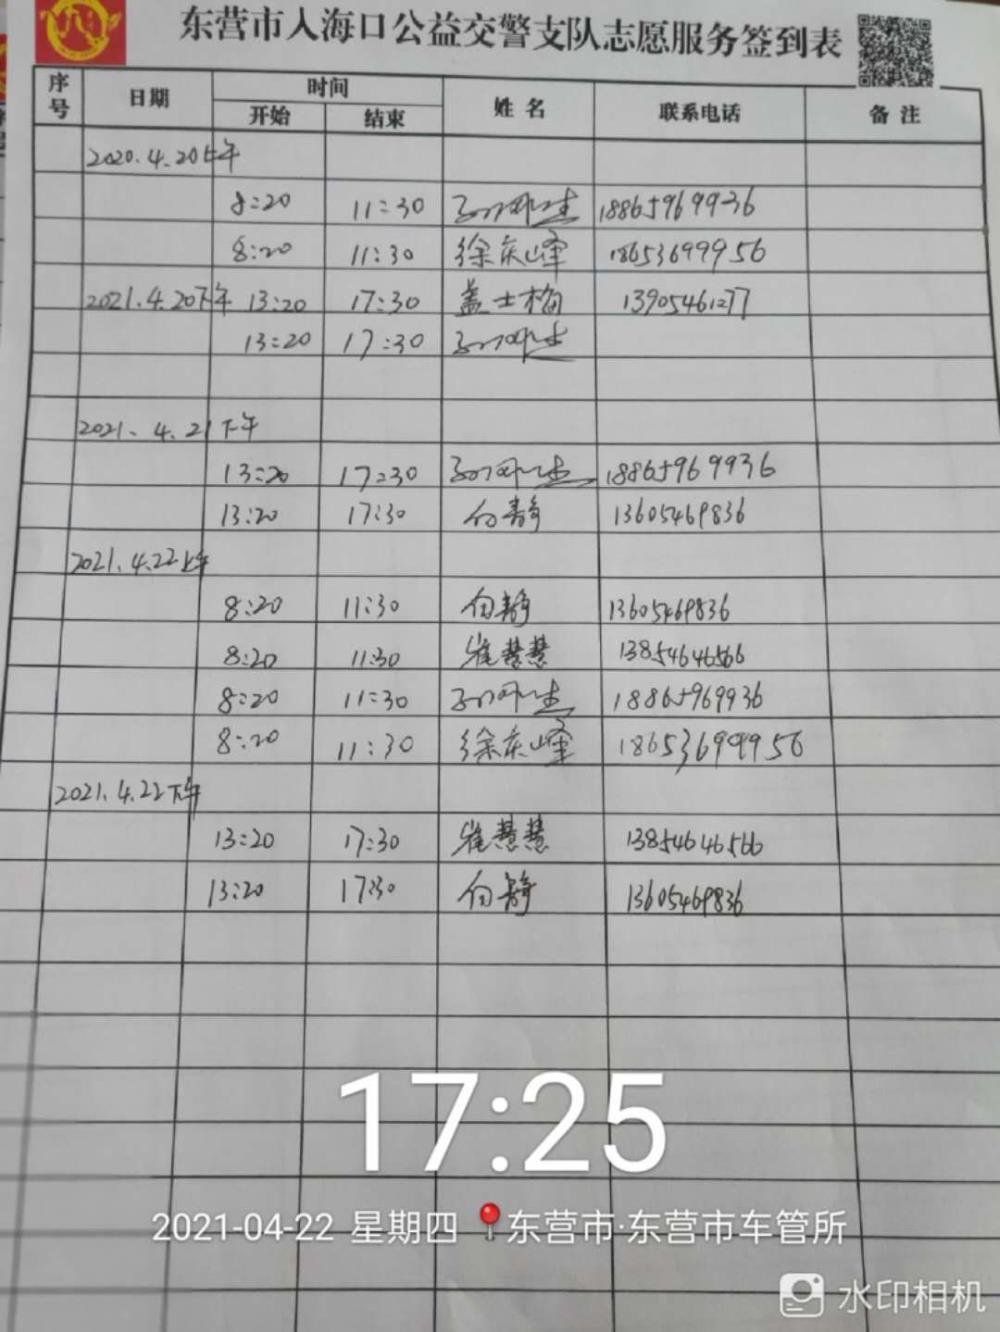 东营市入海口公益交警支队志愿服务签到表
序号 日期 时间 姓名 联系电话 备注
开始 结束
2020.4.20上午
8:20 11:30 18865969936
8:20 11:30 徐庆峰 18653699956
2021.4.20下午 13:20 17:30 盖士梅 13905461277
13:20 17:30
2021.4.21下午
13:20 17:30 18865969936
13:20 17:30 白静 13605469836
2021.4.22上午
8:20 11:30 白静 13605469836
8:20 11:30 崔慧慧 13854646566
8:20 11:30 18865969936
8:20 11:30 徐庆峰 18653699956
2021.4.22下午
13:20 17:30 崔慧慧 13854646566
13:20 17:30 白静 13605469836
17:25
2021-04-22 星期四 东营市·东营市车管所
水印相机